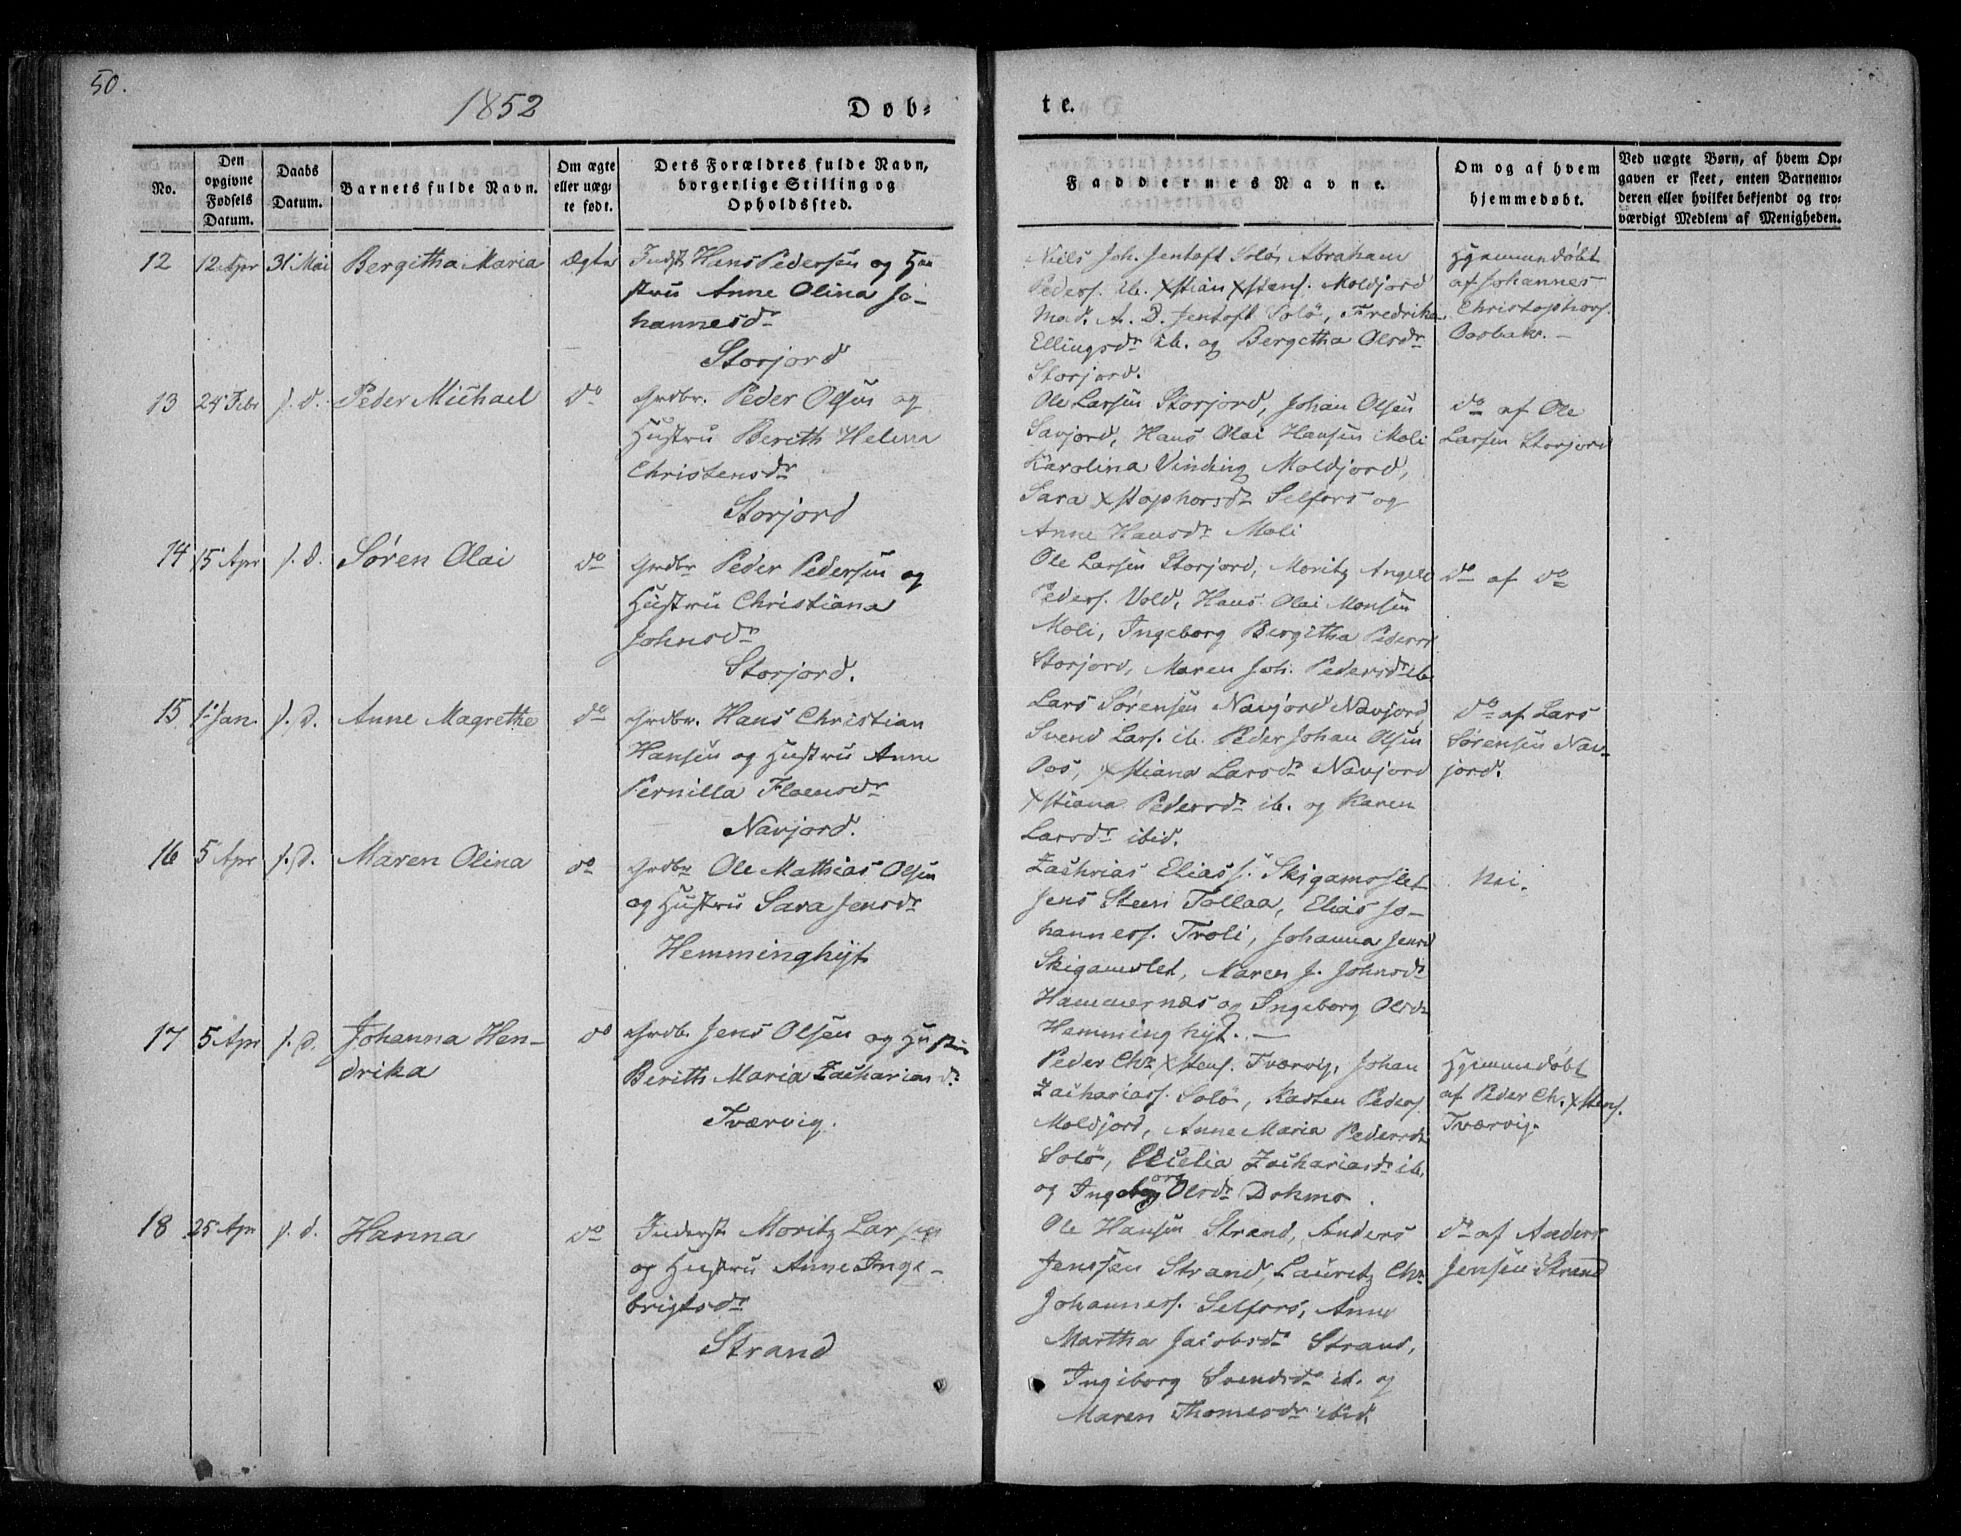 50.
1852
Døb=
te.
No.
Den
opgivne
Fødsels
Datum.
Daabs
Datum.
Barnets fulde Navn.
Om ægte
eller uæg=
te født.
Dets Forældres fulde Navn,
borgerlige Stilling og
Opholdssted.
Faddernes Navne.
Om og af hvem
hjemmedøbt.
Ved uægte Børn, af hvem Op=
gaven er skeet, enten Barnemo=
deren eller hvilket bekjendt og tro=
værdigt Medlem af Menigheden.
12 12 Apr 31 Mai Bergitha Maria ægte
Inds Hans Pedersen og Hu
stru Anne Olina Jo-
hannesdr
Storjord
Niels Joh. Jentoft Solö, Abraham
Peders. ib. Xstian Xstens. Moldjord
Mad. A. D. Jentoft Solö, Fredrika
Ellingsdr ib. og Bergitha Olsdr
Storjord.
Hjemmedøbt
af Johannes
Christophers.
13 24 Febr s. d. Peder Michael do
Grdbr. Peder Olsen og
Hustru Berith Helena
Christensdr
Storjord
Ole Larsen Storjord, Johan Olsen
Savjord, Hans Olai Hansen Moli
Karolina Vinding Moldjord,
Sara Xstophersdr Selfors og
Anne Hansdr Moli
do af Ole
Larsen Storjord
14 15 Apr s. d. Søren Olai do
Grdbr Peder Pedersen og
Hustru Christiana
Johnsdr
Storjord.
Ole Larsen Storjord, Moritz Angell
Peders. Vold, Hans Olai Monsen
Moli, Ingeborg Bergitha Pedersd
Storjord, Maren Joh. Pedersdr ib.
do af do
15 1 Jan. s. d. Anne Magrethe do
Grdbr. Hans Christian
Hansen og Hustru Anne
Pernilla Floensdr
Navjord.
Lars Sørensen Navjord Navjord,
Svend Lars. ib. Peder Johan Olsen
Oos, Xstiana Larsdr Navjord
Xstiana Pedersdr ib. og Karen
Larsdr ibid.
do af Lars
Sørensen Nav-
jord.
16 5 Apr s. d. Maren Olina do
Grdbr Ole Mathias Olsen
og Hustru Sara Jensdr
Hemminghyt
Zachrias Eliass. Skjgamoslet
Jens Steen Tollaa, Elias Jo-
hanness. Troli, Johanna Jensd
Skigamslet, Maren J. Johnsdr
Hammernæs og Ingeborg Olsdr
Hemminghyt. —
Nei.
17 5 Apr s. d. Johanna Hen-
drika
do
Grdb. Jens Olsen og Hustru
Berith Maria Zachariasd.
Tværvig.
Peder Chr Xstens. Tværvig, Johan
Zacharias. Solö, Karten Peders.
Moldjord, Anne Maria Pedersdr
Solö, Cecelia Zachariasdr ib.
og Ingeborg Olsdr Dokmo.
Hjemmedøbt
af Peder Ch. Xstens.
Tværvig.
18 25 Apr s. d. Hanna do
Inderst Moritz Larsen
og Hustru Anne Inge-
brigtsdr
Strand
Ole Hansen Strand, Anders
Jenssen Strand, Lauritz Chr
Johannes. Selfors, Anne
Martha Jacobsdr Strand,
Ingeborg Svendsdr ib. og
Maren Thomesdr ibid.
do af Anders
Jensen Strand